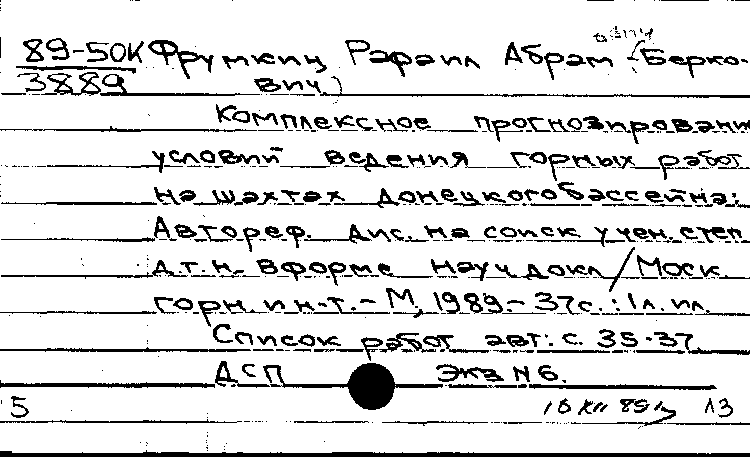 89-50К Фрумкин Рафаил Абрам (Берко-
3889 вич)
Комплексное прогнозировани
условий ведения горных работ
на шахтах Донецкого бассейна:
Автореф. дис. на соиск учен. степ
д.т.н. в форме науч докл / Моск.
горн. ин-т. - М, 1989. - 37с. : 1л. ил.
Список работ авт: с. 35-37.
ДСП Экз N6.
5 13